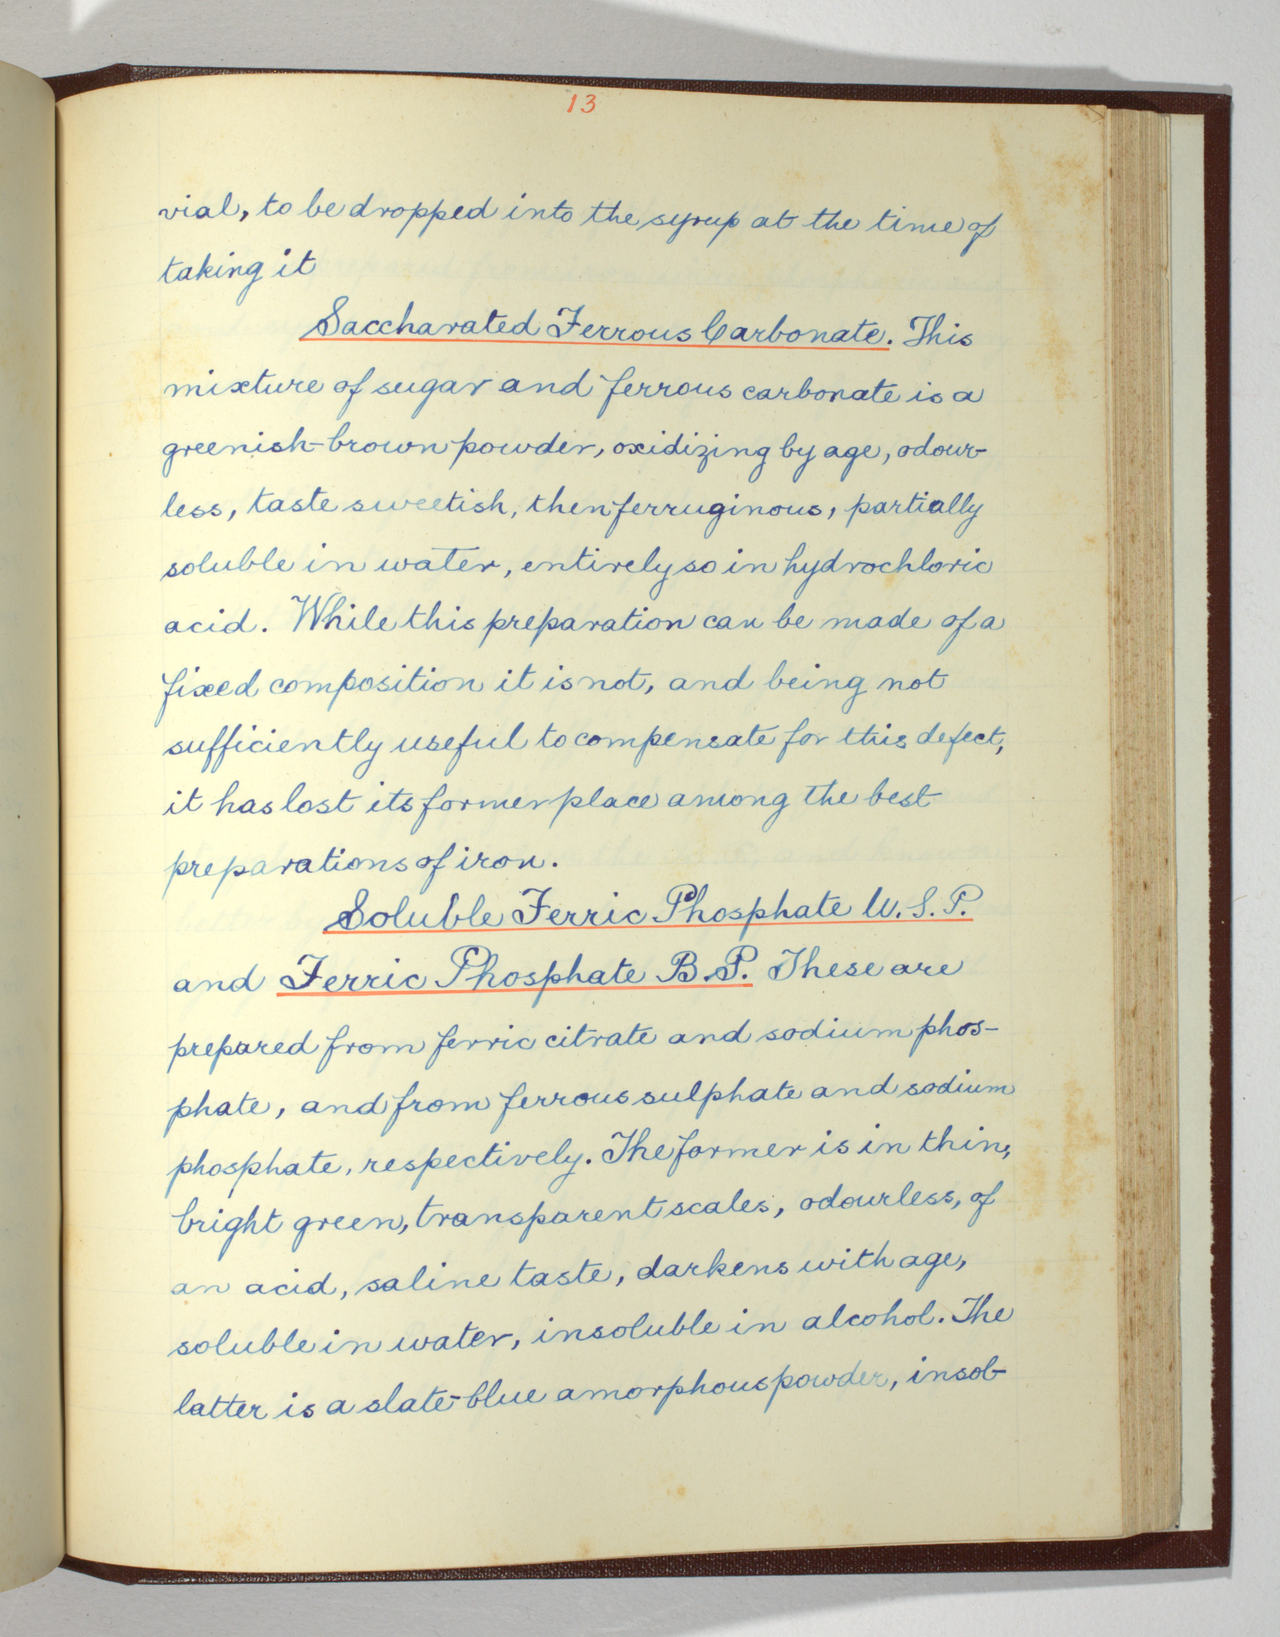 13
vial, to be dropped into the syrup at the time of
taking it
Saccharated Ferrous Carbonate. This
mixture of sugar and ferrous carbonate is a
greenish-brown powder, oxidizing by age, odour-
less, taste sweetish, then ferruginous, partially
soluble in water, entirely so in hydrochloric
acid. While this preparation can be made of a
fixed composition it is not, and being not
sufficiently useful to compensate for this defect,
it has lost its former place among the best
preparations of iron.
Soluble Ferric Phosphate U.S.P.
and Ferric Phosphate B.P. These are
prepared from ferric citrate and sodium phos-
phate, and from ferrous sulphate and sodium
phosphate, respectively. The former is in thin,
bright green, transparent scales, odourless, of
an acid, saline taste, darkens with age,
soluble in water, insoluble in alcohol. The
latter is a slate-blue amorphous powder, insol-